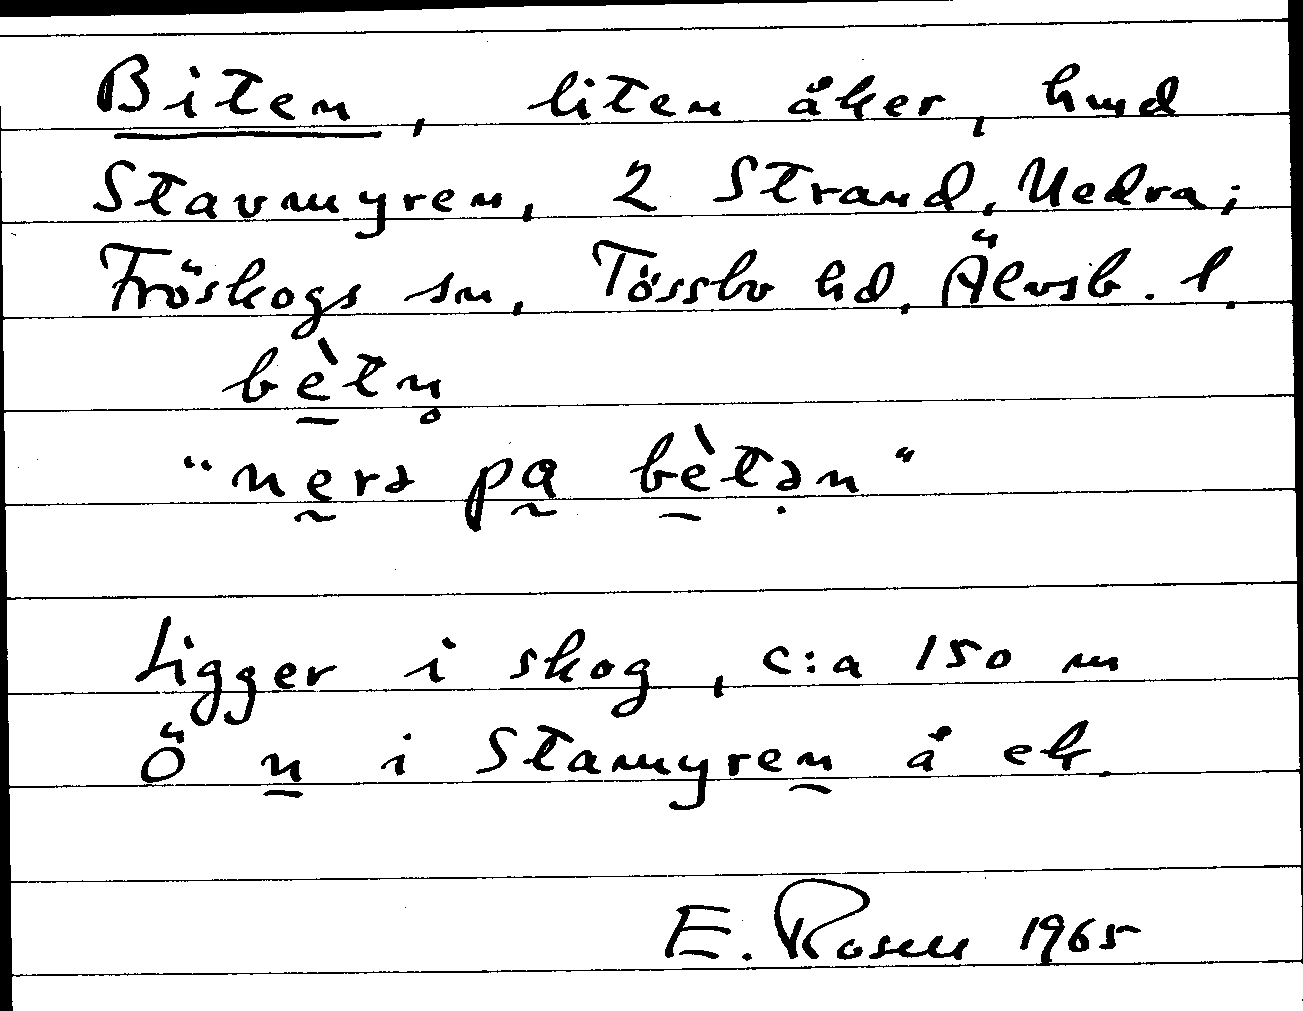 Biten, liten åker, hmd
Stavmyren, 2 Strand, Nedra;
Fröskogs sn, Tössbo hd, Älvsb. l.
bètn̥
"nerə pa bètə̣n"
Ligger i skog, c:a 150 m
Ö n i Stamyren å ek.
E. Rosell 1965